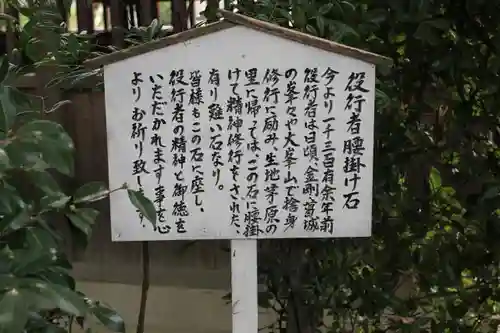 役行者腰掛け石
今より一千三百有餘年前
役行者は日頃、金剛葛城
の峯々や大峯山で捨身
修行に励み、生地茅原の
里に帰っては、この石に腰掛
けて精神修行をされた、
有り難い石なり。
皆様もこの石に座し、
役行者の精神と御徳を
いただかれますよう心
よりお祈り致します。